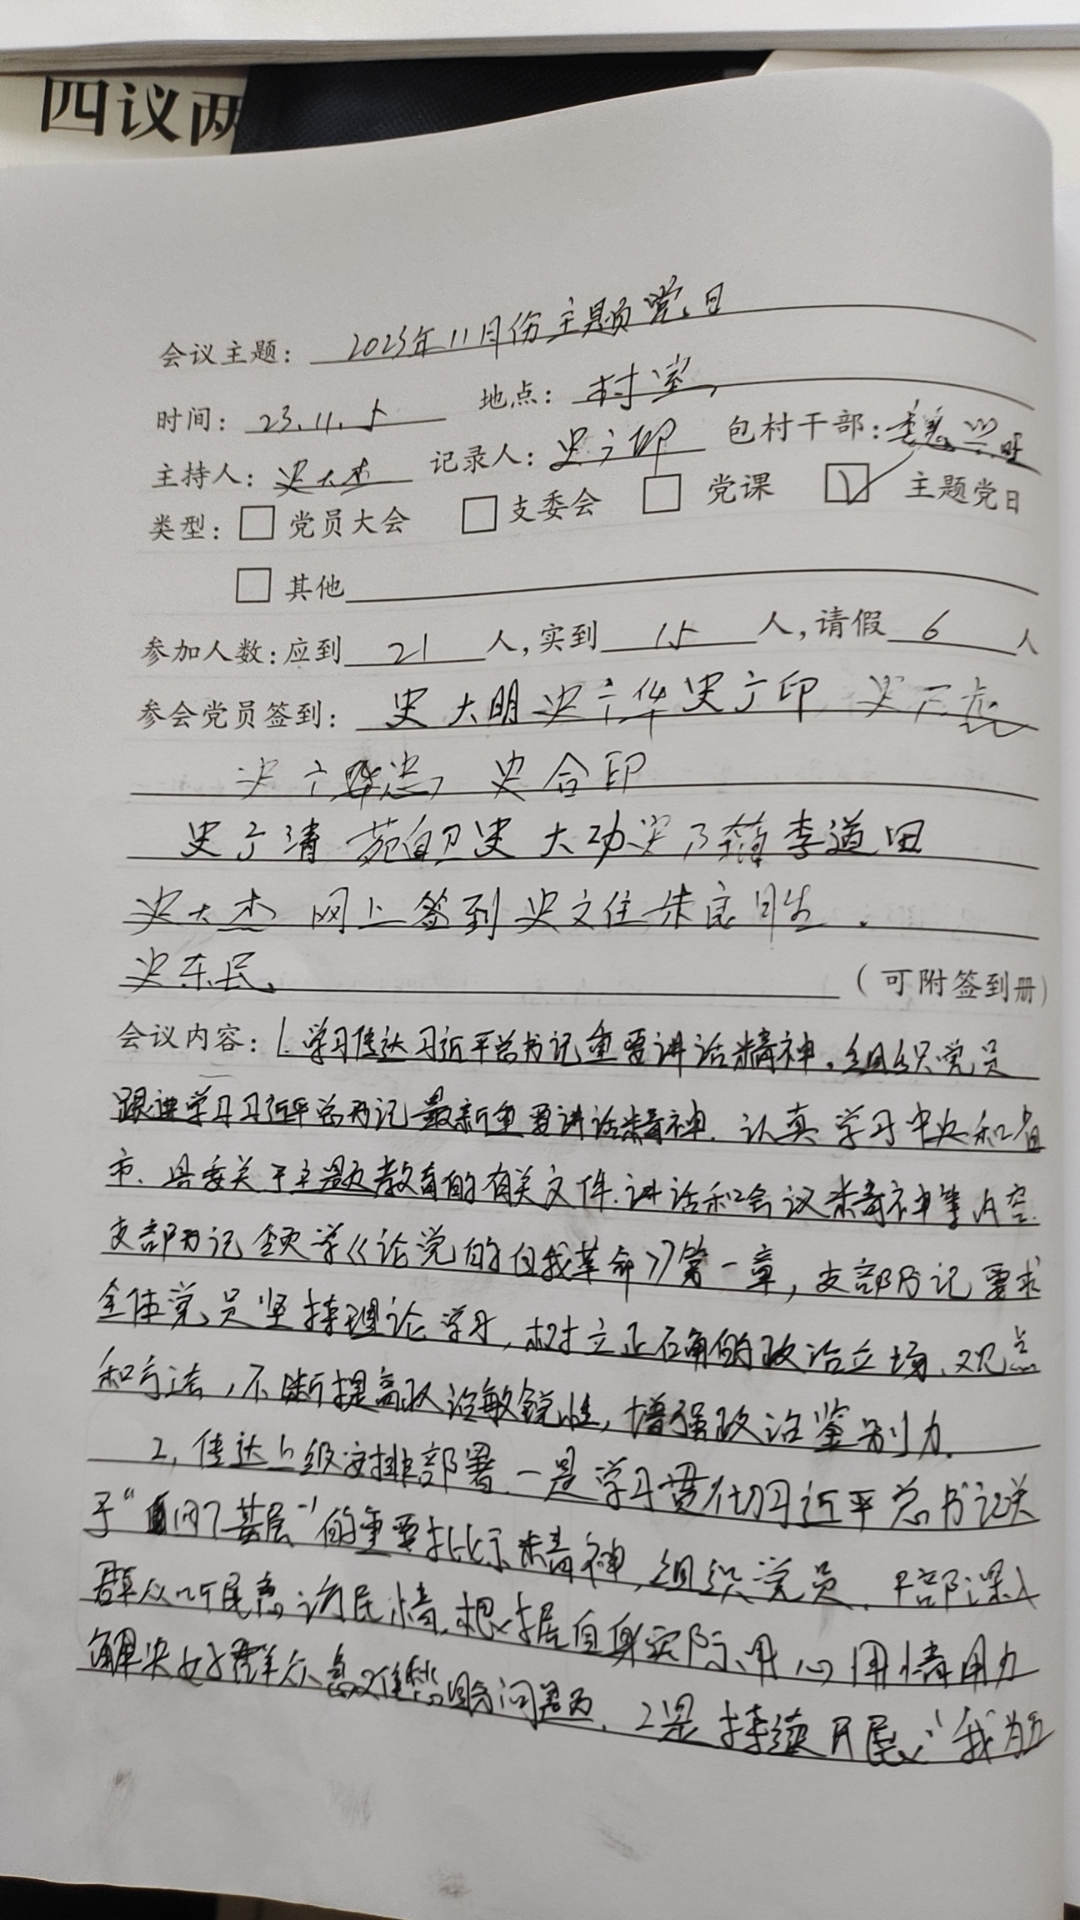 四议两
会议主题: 2023年11月份主题党日
时间: 23.11.5 地点: 村室
主持人: 史大杰 记录人: 史广印 包村干部: 兴旺
类型: □ 党员大会 □ 支委会 □ 党课 ☑ 主题党日
□ 其他
参加人数: 应到 21 人, 实到 15 人, 请假 6 人
参会党员签到: 史大明 史广华 史广印
史合印
史广清 苑自卫 史大功 李道田
史大杰 网上签到 史文住 朱良
史东民、
(可附签到册)
会议内容: 1.学习传达习近平总书记重要讲话精神。组织党员
跟进学习习近平总书记最新重要讲话精神. 认真学习中央和省
市、县委关于主题教育的有关文件.讲话和会议精神等内容.
支部书记领学《论党的自我革命》第一章, 支部书记要求
全体党员坚持理论学习, 树立正确的政治立场、观点
和方法, 不断提高政治敏锐性, 增强政治鉴别力.
2, 传达上级安排部署. 一是学习贯彻习近平总书记关
于“四下基层”的重要批示精神, 组织党员、干部深入
群众听民意访民情. 根据自身实际用心用情用力
解决好群众急难愁盼问题. 2是持续开展“我为